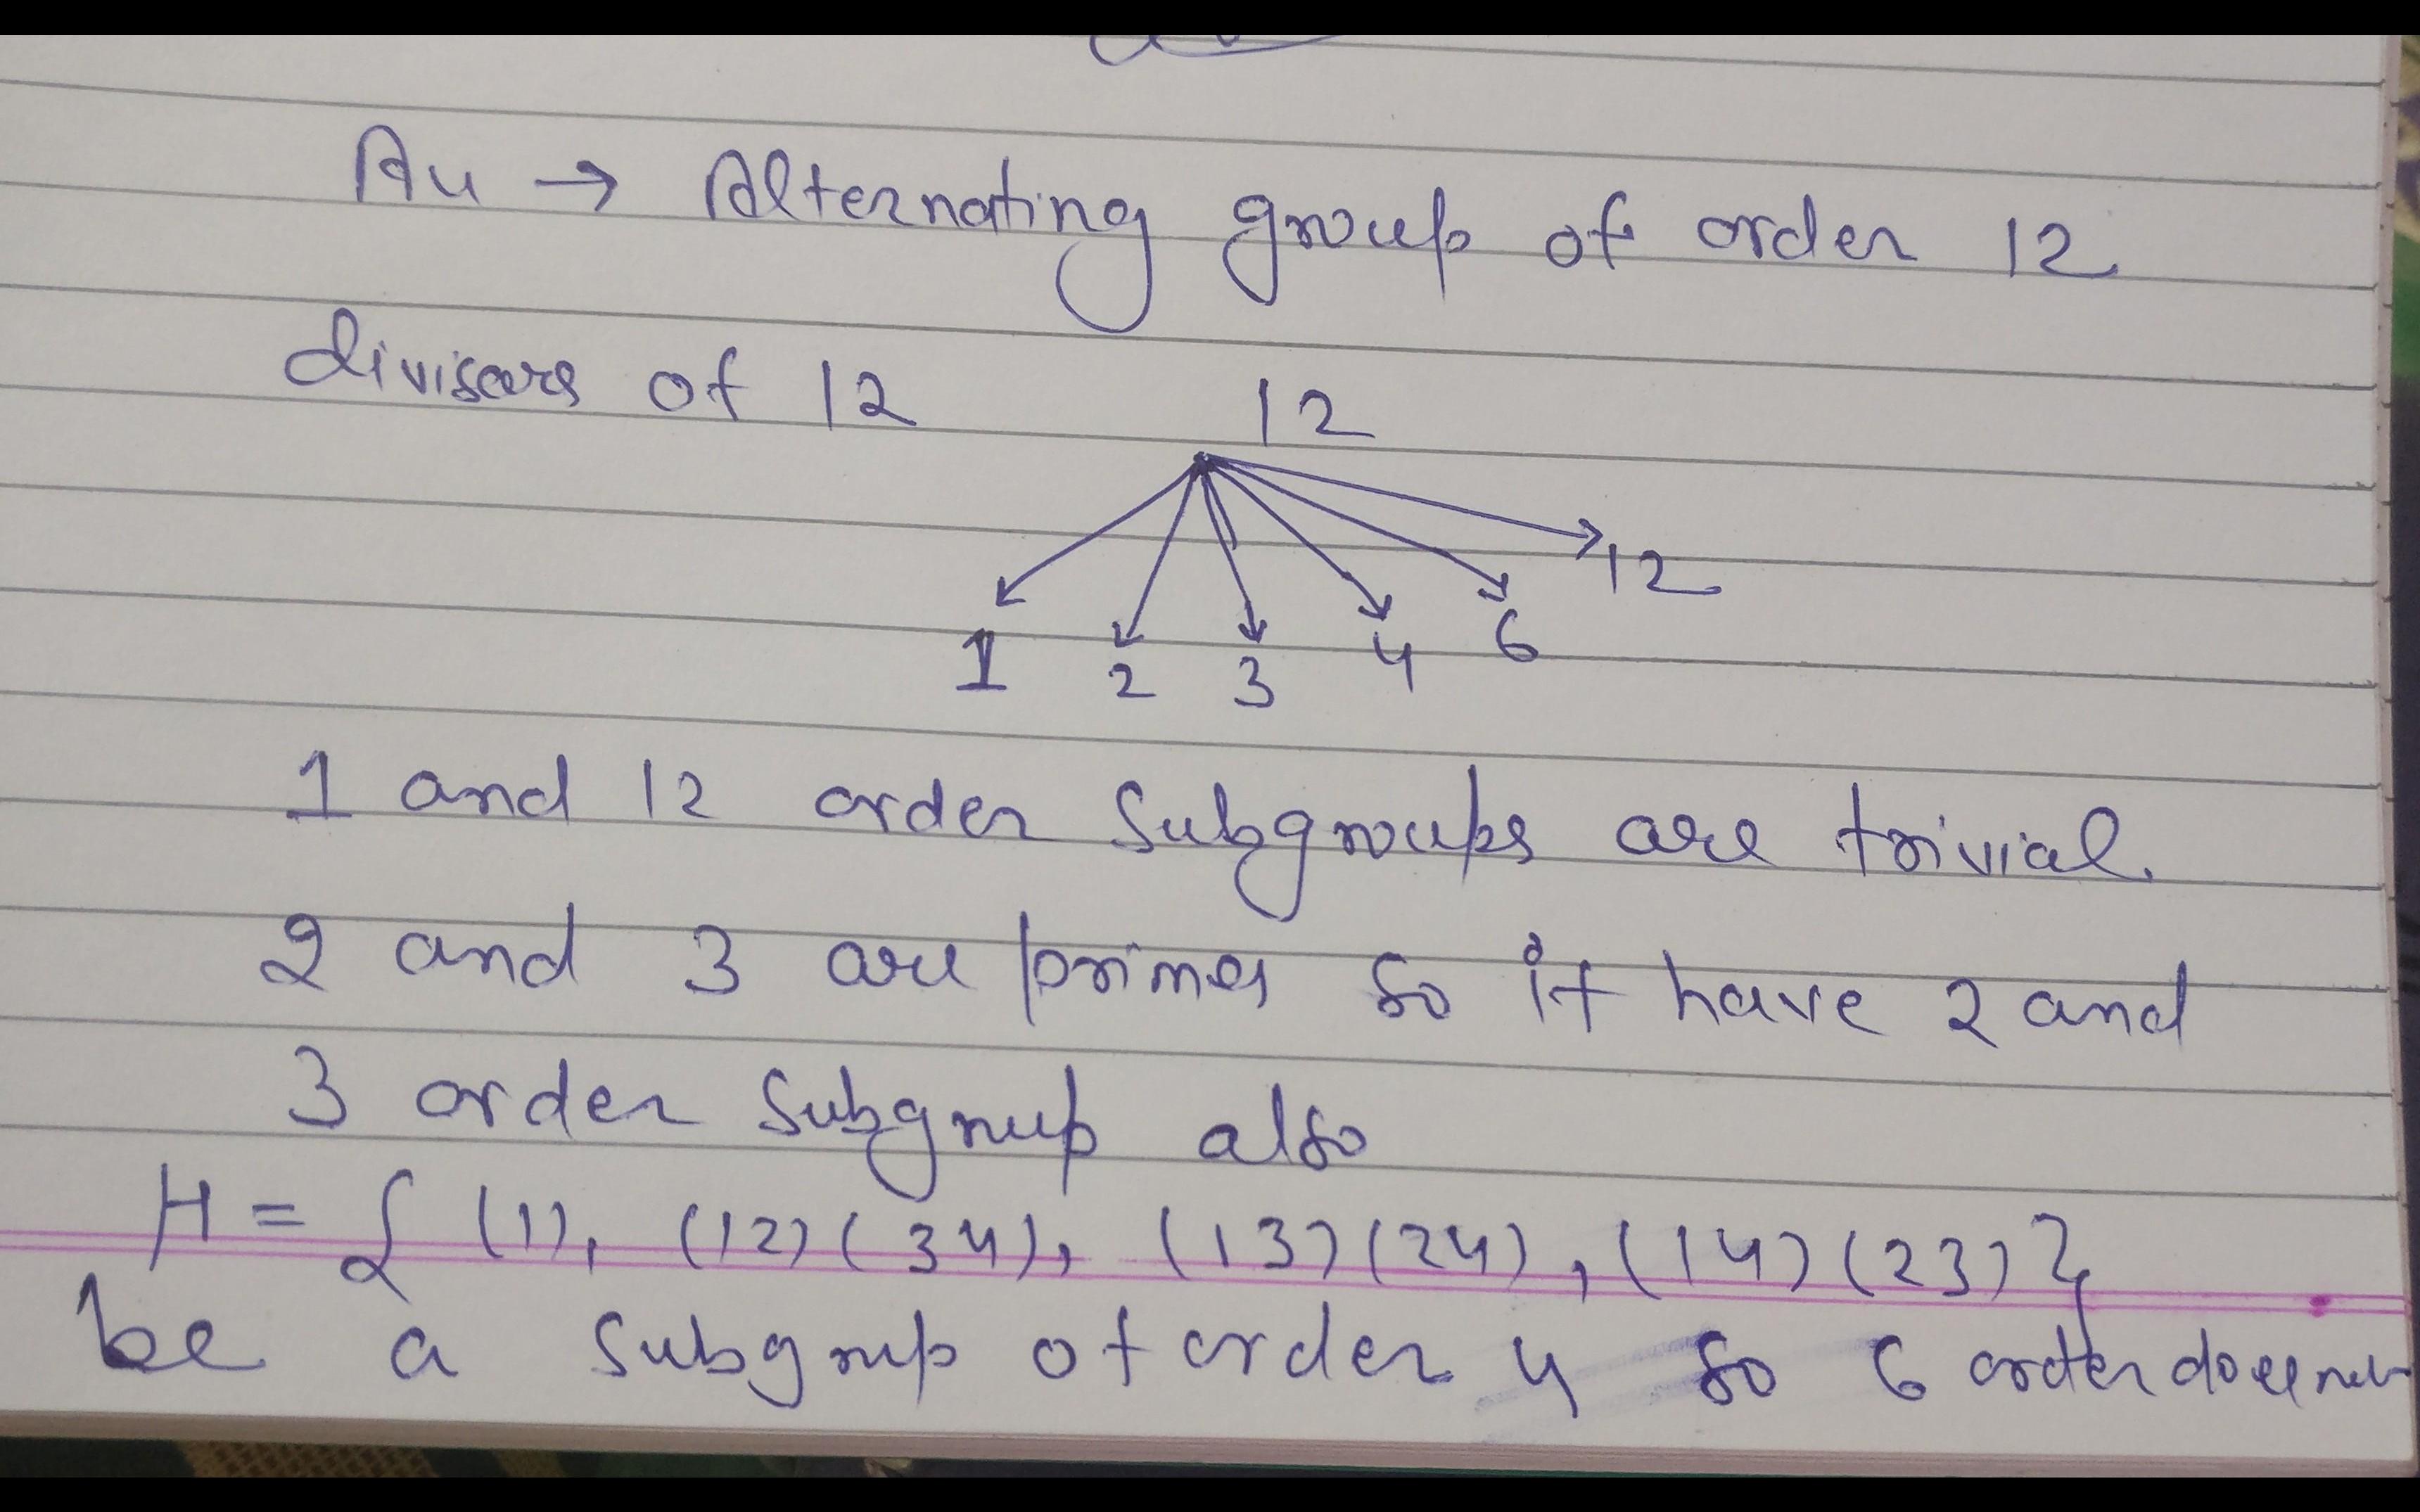 A4 → Alternating group of order 12
divisors of 12 12
12
1 2 3 4 6
1 and 12 order subgroups are trivial.
2 and 3 are primes so it have 2 and
3 order subgroup also
H = { (1), (12)(34), (13)(24), (14)(23) }
be a subgroup of order 4 so 6 order